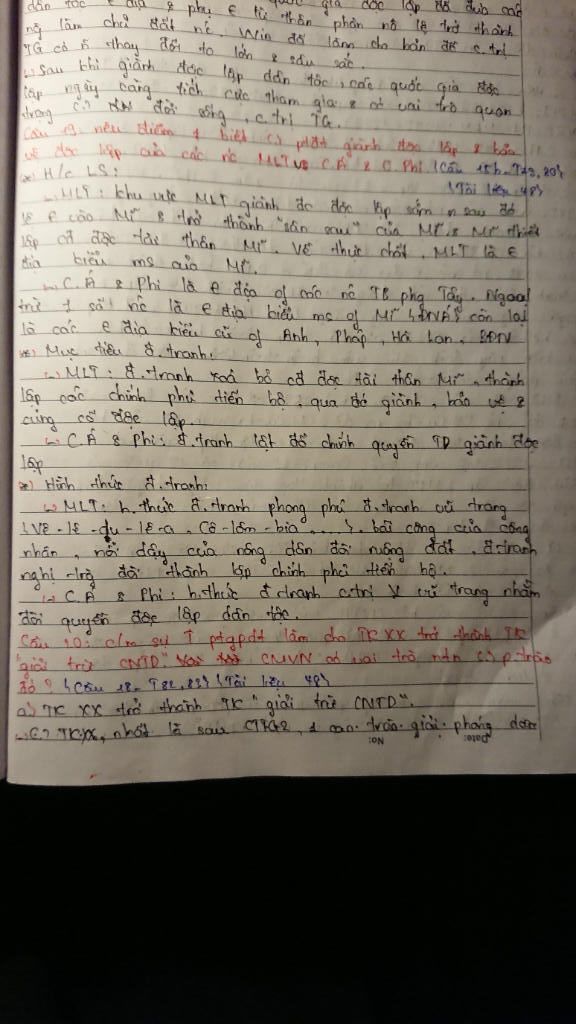 dân tộc є địa & phụ є quốc gia độc lập đã đưa các
ng làm chủ đất nc. Win đó làm cho bản đồ c.trị
TG có n thay đổi to lớn & sâu sắc.
↳ Sau khi giành đc lập dân tộc, các quốc gia độc
lập ngày càng tích cực tham gia & có vai trò quan
trọng đời sống, c.trị TG.
Câu 19: nêu điểm ≠ biệt ptđt giành độc lập & bảo
vệ độc lập của các nc MLT vs C.Á & C.Phi
(Tài liệu 48)
*) H/c LS:
↳ MLT: khu vực MLT giành đc độc lập sớm n sau đó
lệ є vào Mĩ & trở thành "sân sau" của Mĩ & Mĩ thiết
lập cđ độc tài thân Mĩ. Về thực chất, MLT là є
địa kiểu ms của Mĩ.
↳ C.Á & Phi là є địa of các nc TB phg Tây. Ngoại
trừ 1 số nc là є địa kiểu ms of Mĩ (ĐNÁ) còn lại
là các є địa kiểu cũ of Anh, Pháp, Hà Lan, BĐN
*) Mục tiêu đ.tranh:
↳ MLT: đ.tranh xoá bỏ cđ độc tài thân Mĩ, thành
lập các chính phủ tiến bộ, qua đó giành, bảo vệ &
củng cố độc lập.
↳ C.Á & Phi: đ.tranh lật đổ chính quyền TD giành độc
lập
*) Hình thức đ.tranh:
↳ MLT: h.thức đ.tranh phong phú đ.tranh vũ trang
(Vê-lê-du-lê-a, Cô-lôm-bia,...), bãi công của công
nhân, nổi dậy của nông dân đòi ruộng đất, đ.tranh
nghị trg đòi thành lập chính phủ tiến bộ.
↳ C.Á & Phi: h.thức đ.tranh c.trị V vũ trang nhằm
đòi quyền độc lập dân tộc.
Câu 20: c/m sự T ptgpdt làm cho TK XX trở thành TK
"giải trừ CNTD" CMVN có vai trò ntn p.trào
đó? (Tài liệu 48)
a) TK XX trở thành TK "giải trừ CNTD".
TK XX, nhất là sau CTTG2, 1 cao trào giải phóng dân
Date: No: